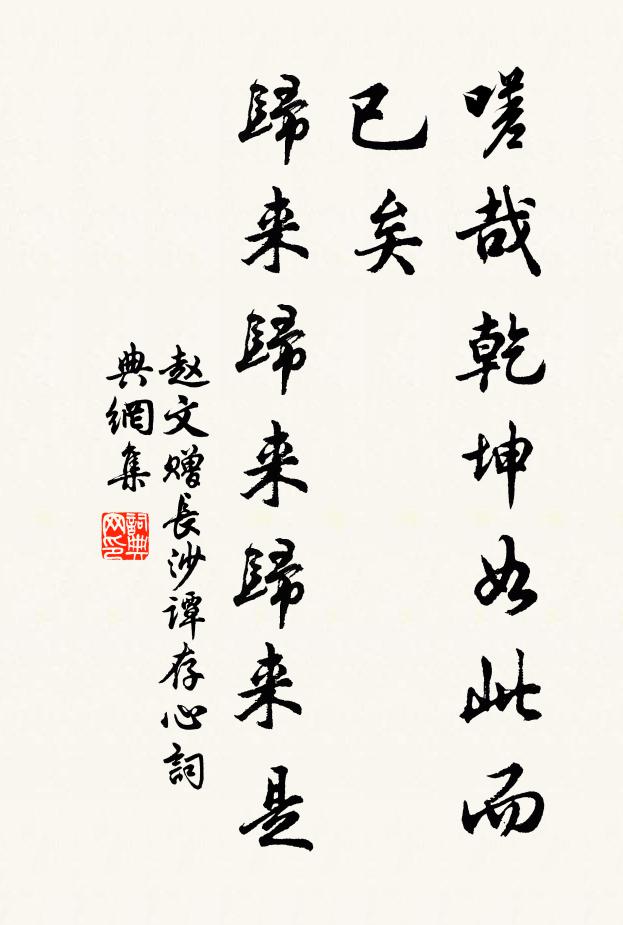 嗟哉乾坤如此而
已矣
歸来歸来歸来是
赵文赠長沙谭存心詞
典網集
詞典
网印